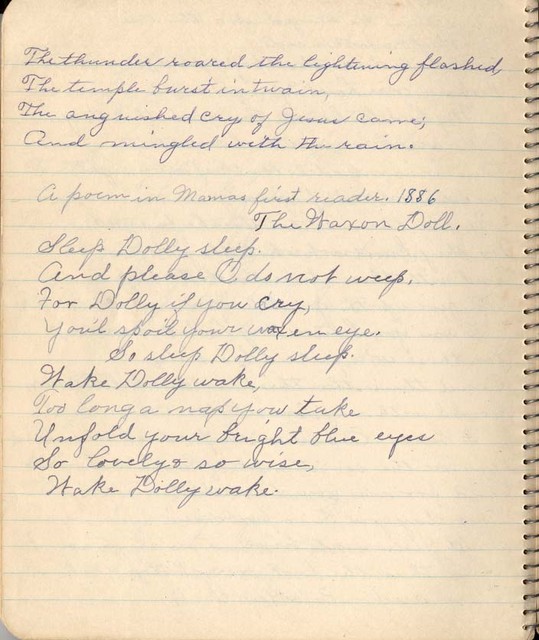 The thunder roared the lightening flashed
The temple burst in twain,
The anguished cry of Jesus came;
And mingled with the rain.
A poem in Mamas first reader. 1886
The Waxon Doll.
Sleep Dolly sleep.
And please O do not weep.
For Dolly if you cry,
You'l spoil your waxen eye.
So sleep Dolly sleep.
Wake Dolly wake,
Too long a nap you take
Unfold your bright blue eyes
So lovely & so wise,
Wake Dolly wake.